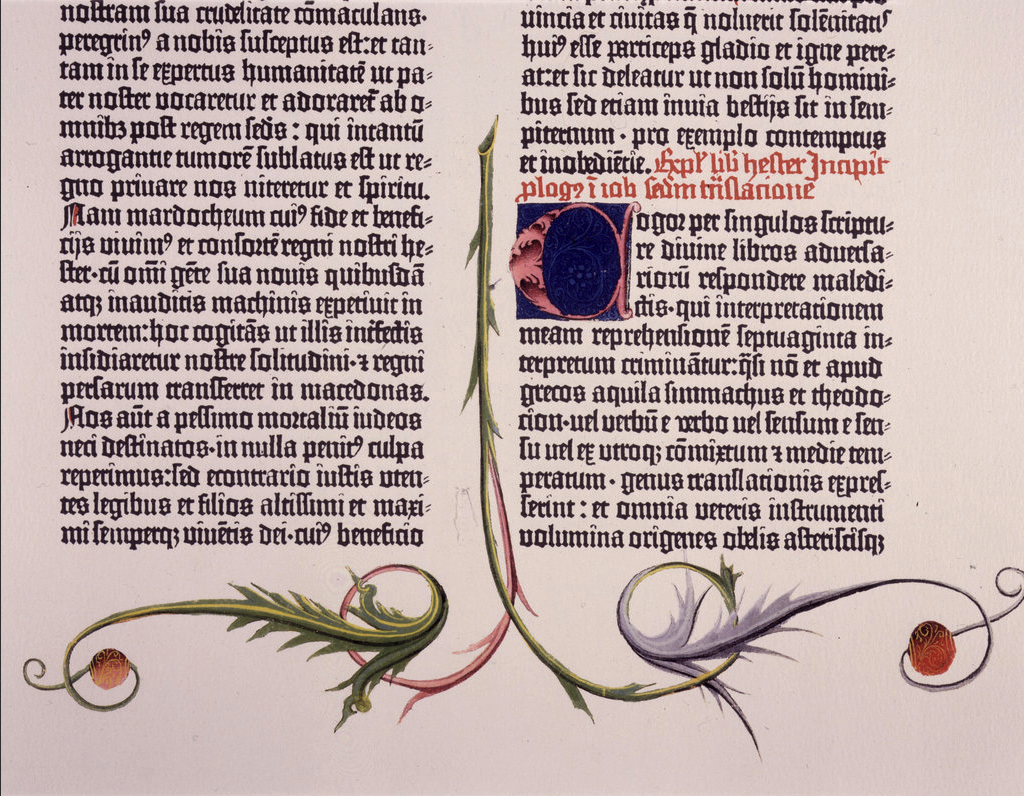 nostram sua crudelitate cōmaculans.
peregrin⁹ a nobis susceptus est: et tan-
tam in se expertus humanitatē ut pa-
ter noster vocaretur et adoraret̄ ab o-
mnibꝫ post regem sedꝰ: qui intantū
arrogantie tumorē sublatus est ut re-
gno privare nos niteretur et spiritu.
Nam mardocheum cui⁹ fide et benefi-
cijs vivim⁹ et consortē regni nostri he-
ster·cū om̄i gēte sua novis quibusdā
atqꝫ inauditis machinis expetivit in
mortem: hoc cogitās ut illis inťfectis
insidiaretur nostre solitudini·⁊ regni
persarum transferret in macedonas.
Nos aūt a pessimo mortaliū iudeos
neci destinatos·in nulla penit⁹ culpa
reperimus: sed econtrario iustis uten-
tes legibus et filios altissimi et maxi-
mi semperqꝫ vivētis dei·cui⁹ beneficio
vincia et civitas q̄ noluerit solēnitatis
hui⁹ esse particeps gladio et igne pere-
at: et sic deleatur ut non solū homini-
bus sed etiam invia bestijs sit in sem-
piternum · pro exemplo contemptus
et inobediētie. Expl' lib' hester Incipit
ꝓlogꝰ ī iob sedm trāslacione
Cogor per singulos scriptu-
re divine libros adversa-
riorū respondere maledi-
ctis·qui interpretationem
meam reprehensionē septuaginta in-
terpretum criminātur: q̄si nō et apud
grecos aquila simmachus et theodo-
cion·vel verbū e verbo vel sensum e sen-
su vel ex utroqꝫ cōmixtum ⁊ medie tem-
peratum · genus translationis expres-
serint : et omnia veteris instrumenti
volumina origenes obelis asteriscisqꝫ